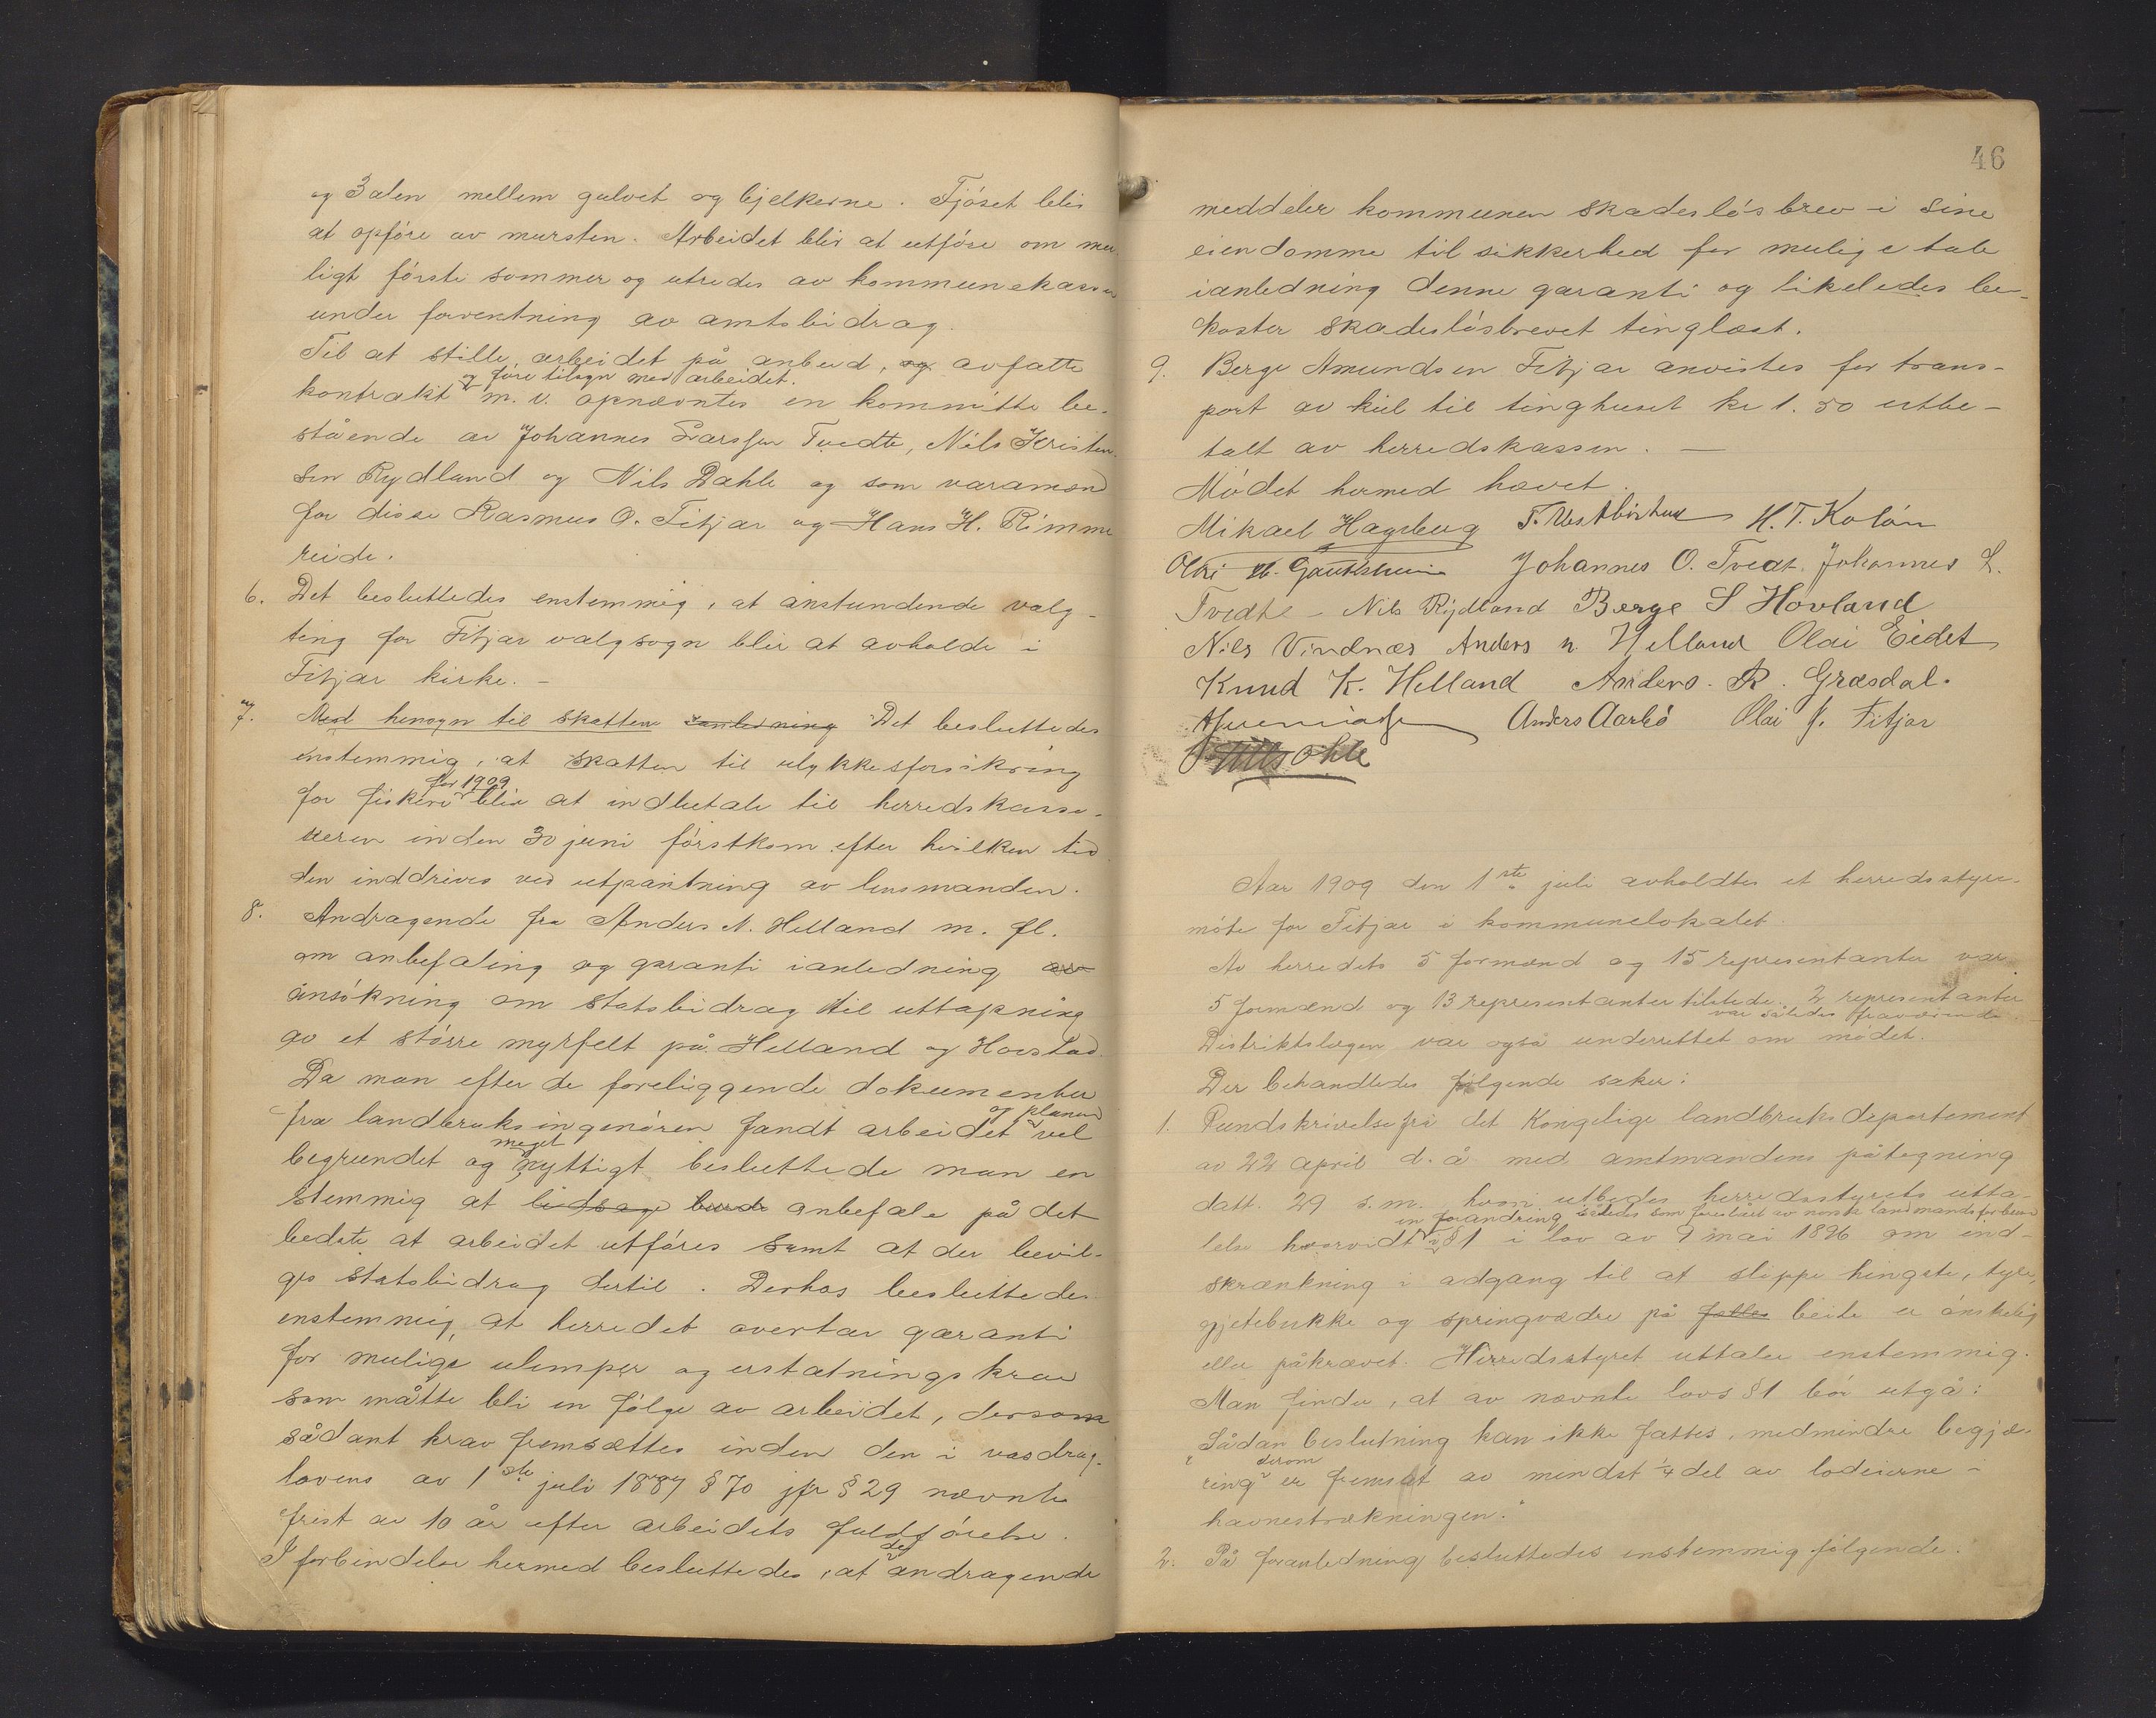 og 3 alen mellem gulvet og bjelkerne. Fjöset blir
at opföre av mursten. Arbeidet blir at utföre om mu-
ligt förste sommer og utredes av kommunekassen
under forventning av amtsbidrag.
Til at stille arbeidet på anbud, og avfatte
og före tilsyn med arbeidet.
kontrakt m. v. opnævntes en kommitte be-
stående av Johannes Larssen Tvedte, Nils Kristen-
sen Rydland og Nils Dahle og som varamænd
for disse Rasmus O. Fitjar og Hans H. Rimme
reide.
6. Det besluttedes enstemmig, at anstundende valg-
ting for Fitjar valgsogn blir at avholde i
Fitjar kirke. -
7. Med hensyn til skatten ianledning Det besluttedes
enstemmig, at skatten til ulykkesforsikring
for 1909
for fiskere blir at indbetale til herredskasse-
reren inden 30 juni förstkom. efter hvilken tid
den inddrives ved utpantning av lensmanden.
8. Andragende fra Anders N. Helland m. fl.
om anbefaling og garanti ianledning av
ansökning om statsbidrag til uttapning
av et större myrfelt på Helland og Hovstad.
Da man efter de foreliggende dokumenter
og planen
fra landbruksingenören fandt arbeidet vel
meget
begrundet og nyttigt besluttede man en
stemmig at ledsage burde anbefale på det
bedste at arbeidet utföres samt at der bevil-
ges statsbidrag dertil. Derhos besluttedes
enstemmig, at herredet overtar garanti
for mulige ulemper og erstatningskrav
som måtte bli en fölge av arbeidet, dersom
sådant krav fremsættes inden den i vasdrag-
lovens av 1ste juli 1887 § 70 jfr § 29 nævnte
frist av 10 år efter arbeidets fuldförelse.
de
I forbindelse hermed besluttedes, at andragende
46
meddeler kommunen skadeslösbrev i sine
eiendomme til sikkerhed for mulige tab
ianledning denne garanti og likeledes be-
koster skadeslösbrevet tinglæst.
9. Berge Amundsen Fitjar anvistes for trans-
port av kul til tinghuset kr 1.50 utbe-
talt av herredskassen. —
Mödet hermed hævet.
Mikael Hageberg T. Vestböstad H. T. Kolön
Johannes O. Tvedt. Johannes L.
Tvedte - Nils Rydland Berge S Hovland
Nils Vindnæs Anders n. Helland Olai Eidet
Knud K. Helland Anders. R. Græsdal.
Anders Aarbö Olai J. Fitjar
Aar 1909 den 1ste juli avholdtes et herredsstyre-
möte for Fitjar i kommunelokalet.
Av herredets 5 formænd og 15 repræsentanter var
5 formænd og 13 repræsentanter tilstede. 2 repræsentanter
var således fraværende
Distriktslægen var også underrettet om mödet.
Der behandledes fölgende saker:
1. Rundskrivelse fra det Kongelige landbruksdepartement
av 22 april d. å med amtmandens påtegning
datt. 29 s.m. hvori utbedes herredsstyrets utta-
en forandring således som foreslået av norsk landmandsforbund
lelse hvorvidt i § 1 i lov av 9 mai 1896 om ind-
skrænkning i adgang til at slippe hingste, tyre,
gjetebukke og springvædre på fælles beite er önskelig
eller påkrævet. Herredsstyret uttaler enstemmig.
Man finder, at av nævnte lovs § 1 bör utgå:
„Sådan beslutning kan ikke fattes, medmindre begjæ-
derom
ring er fremsat av mindst ¼ del av lodeierne i
havnestrækningen."
2. På foranledning besluttedes enstemmig fölgende.